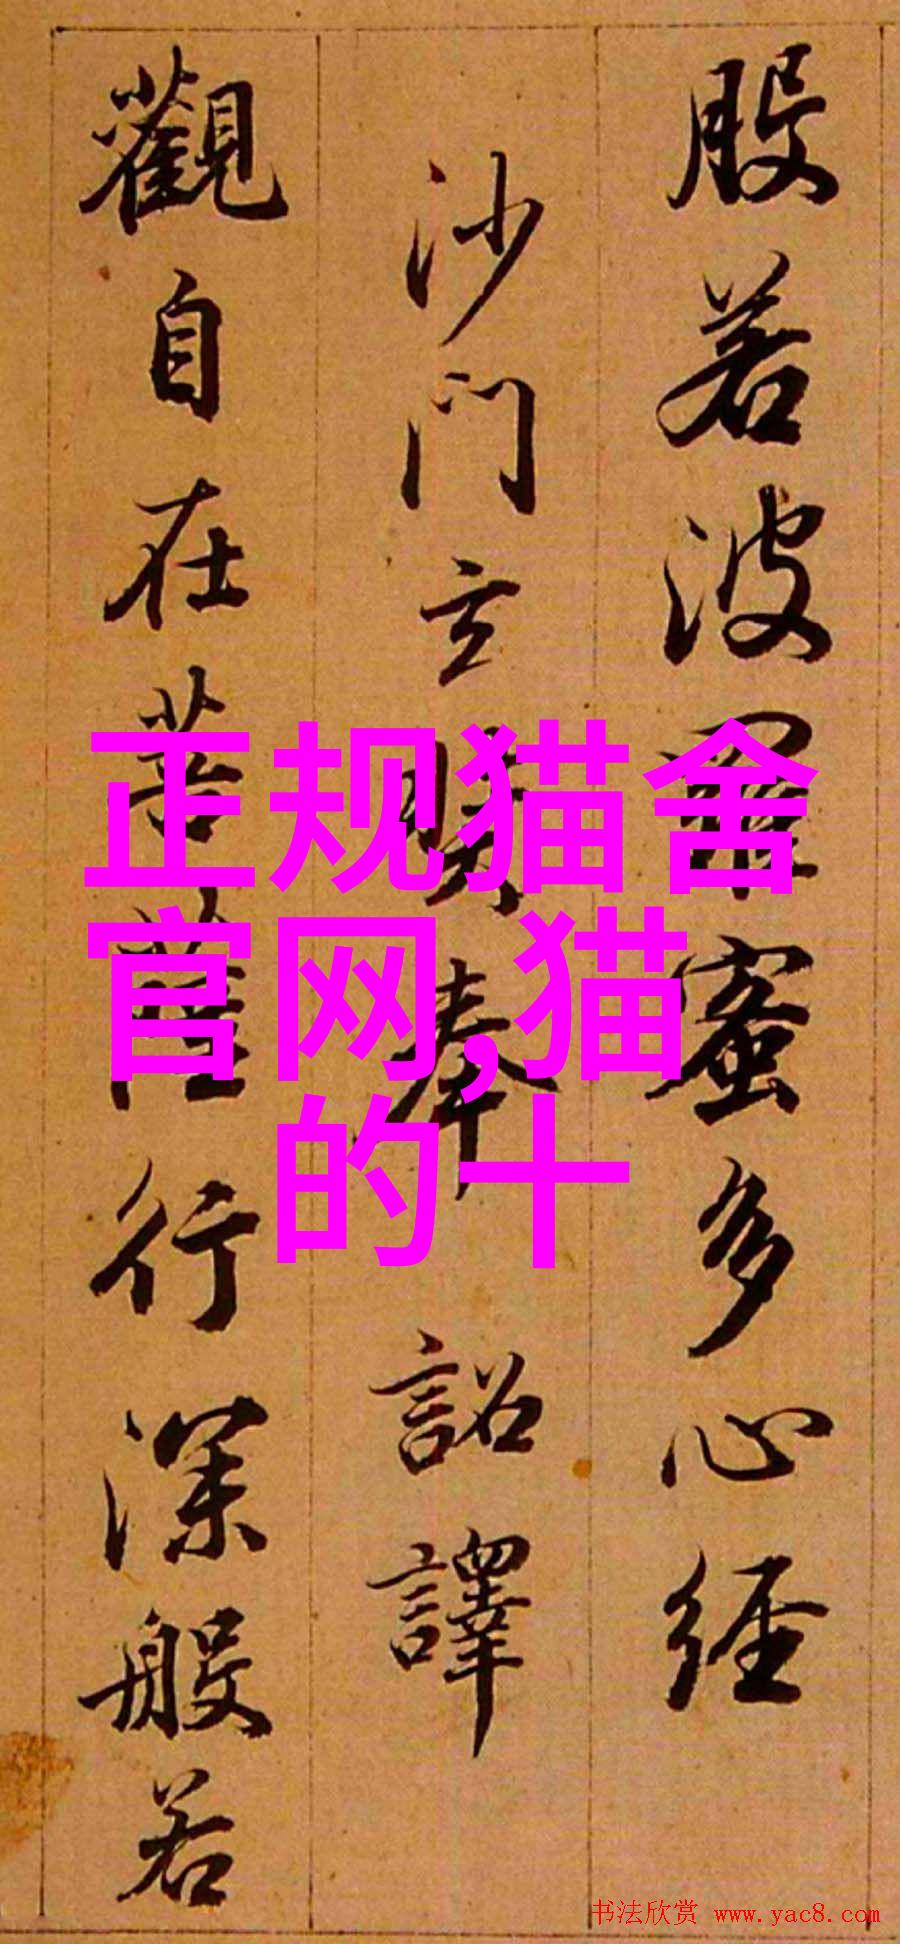 般若波羅蜜多心經
沙門玄奘奉 詔譯
觀自在菩薩行深般若
正规猫舍
官网,猫
的十
书法欣赏 www.yac8.com